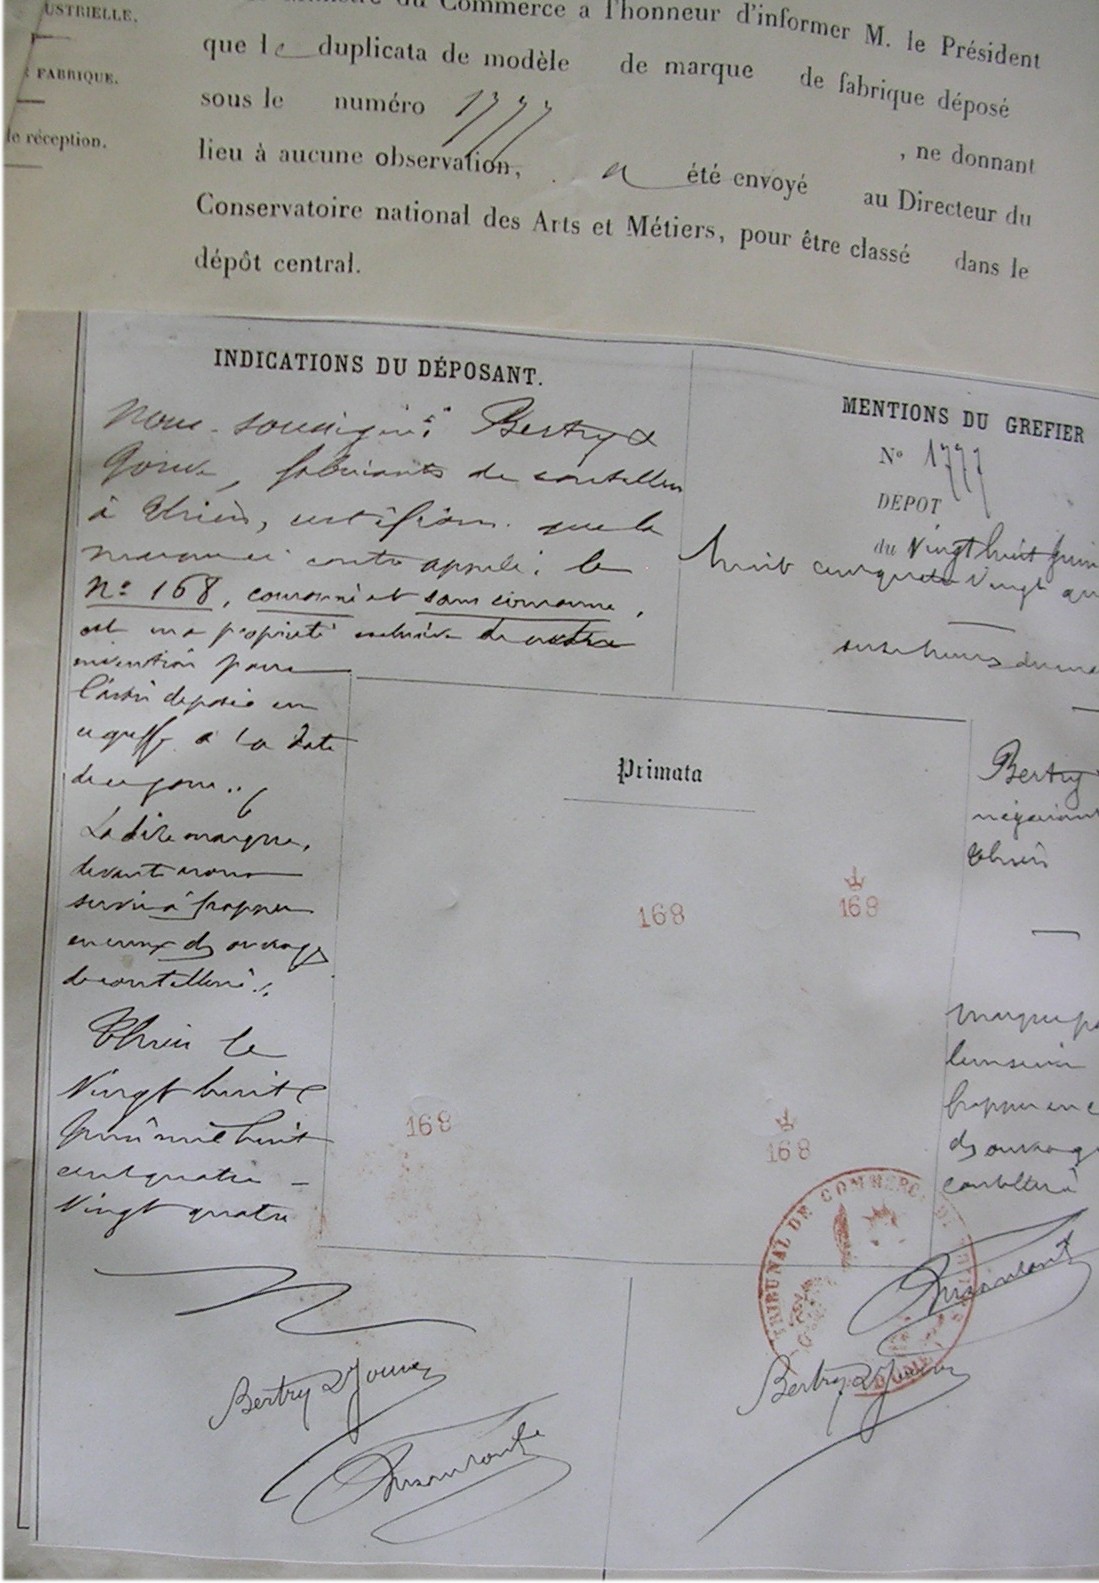 USTRIELLE.
FABRIQUE.
réception.
du Commerce a l'honneur d'informer M. le Président
que le duplicata de modèle de marque de fabrique déposé
sous le numéro 1777 , ne donnant
lieu à aucune observation, a été envoyé au Directeur du
Conservatoire national des Arts et Métiers, pour être classé dans le
dépôt central.
INDICATIONS DU DÉPOSANT.
Nous soussignés Bertry &
fabricants de coutellerie
à Thiers, certifions que la
marque ci contre appelée le
n° 168, couronné et sans couronne,
est une propriété exclusive de notre
invention pour
l'avoir déposée au
greffe à la date
de ce jour..
La dite marque,
devant nous
servir à frapper
en creux des ouvrages
de coutellerie.
Thiers le
Vingt huit
Juin mil huit
cent quatre
Vingt quatre
Bertry & Jouve
MENTIONS DU GREFIER
N° 1777
DEPOT
du Vingt huit Juin
huit cent quatre Vingt qu
onze heures du ma
Primata
168
168
168
168
Bertry
négociant
Thiers
marque p
leur servir
frapper en c
des ouvrag
coutellerie
TRIBUNAL DE COMMERCE DE THIERS
Bertry & Jouve